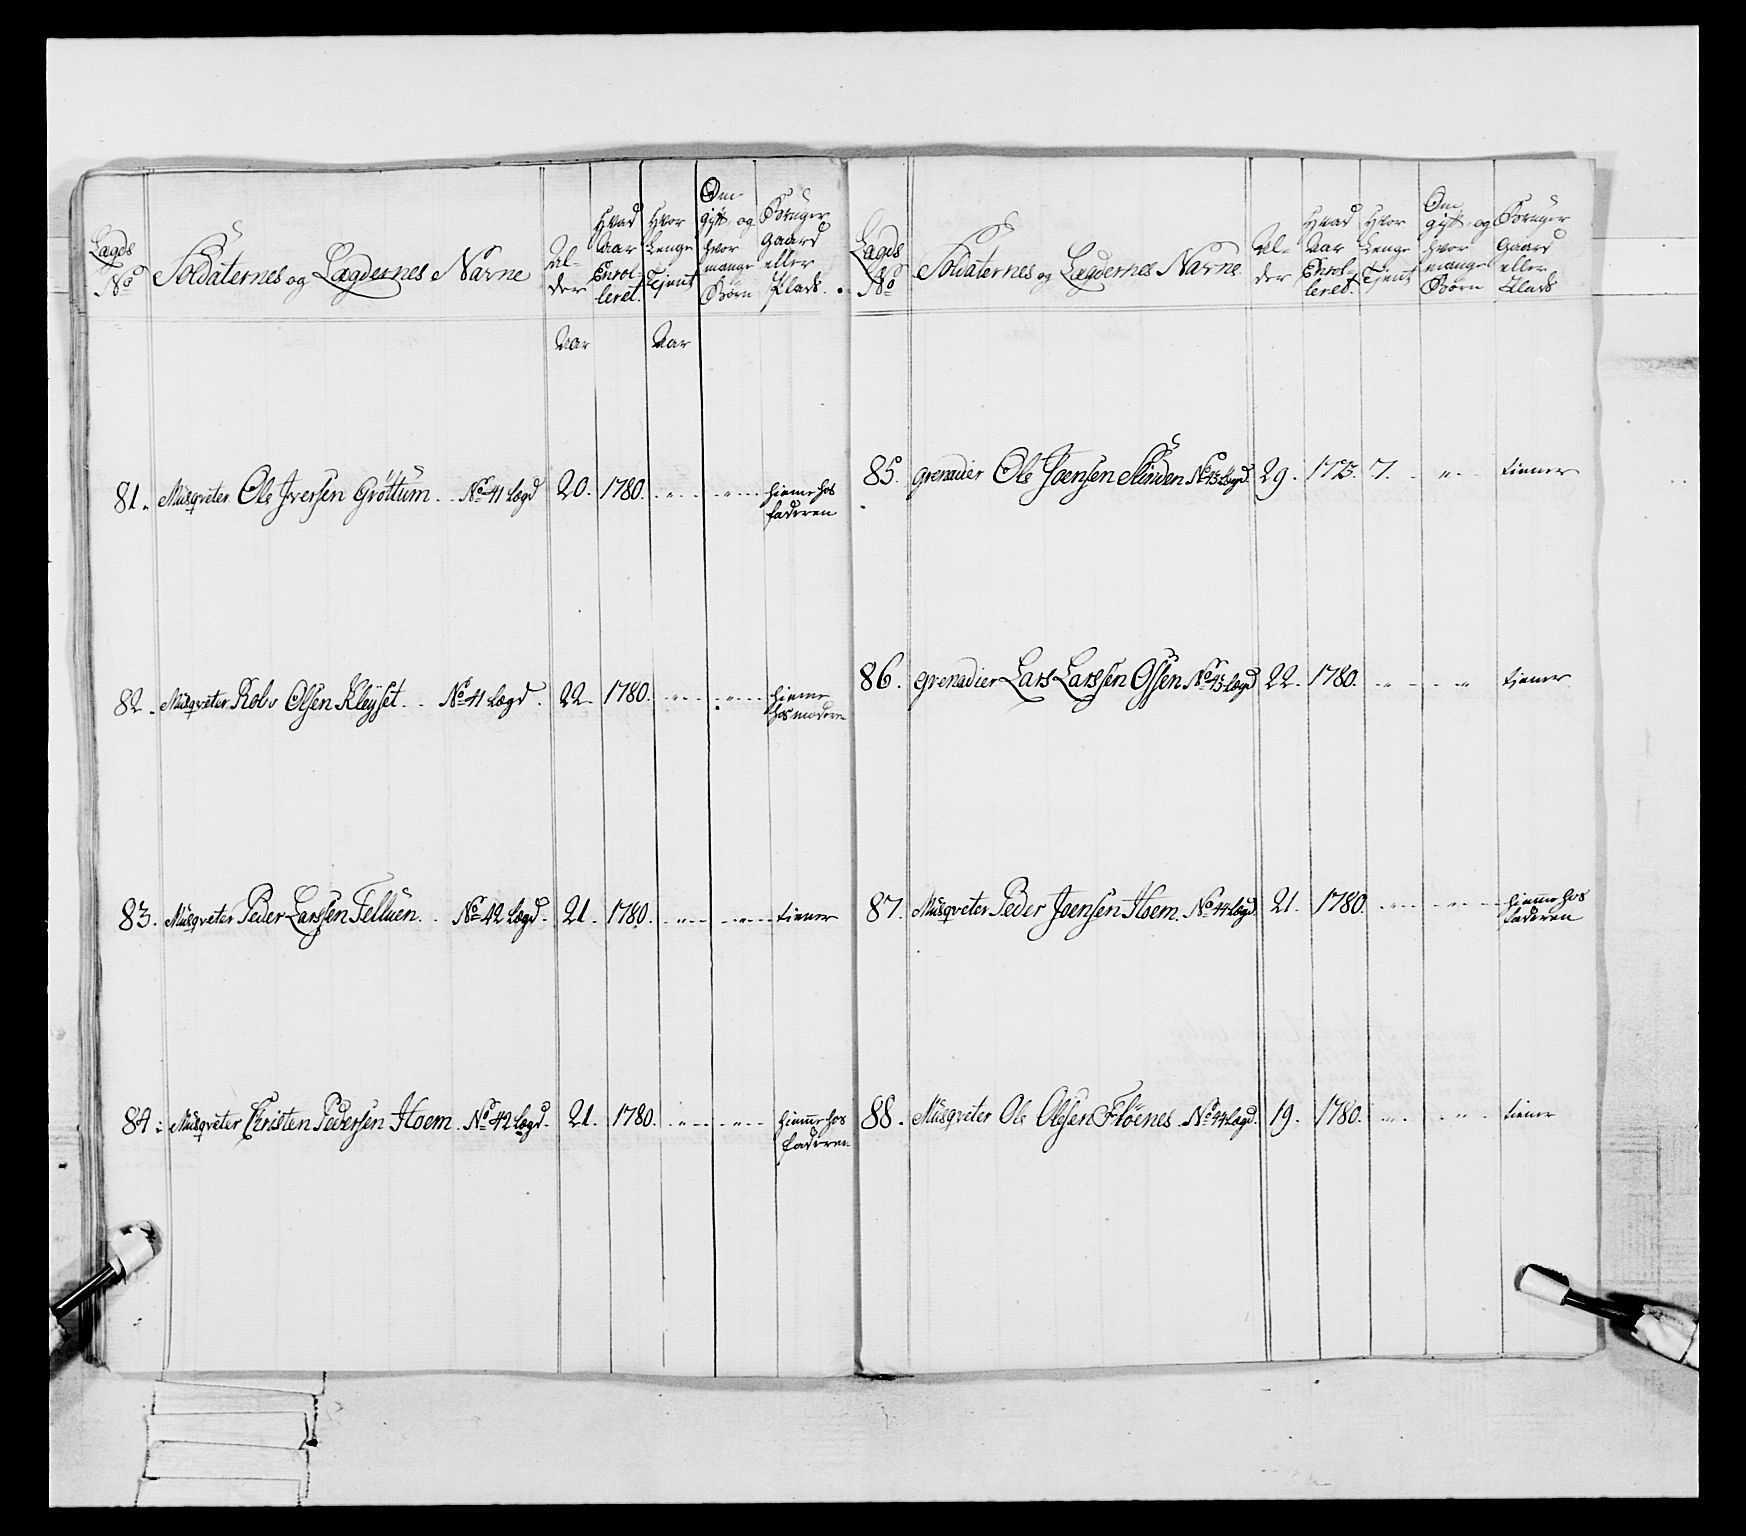 Lægds No
Soldaternes og Lægdernes Navne
Al-
der
Hvad
Aar
Enrol-
leret.
Hvor
Lenge
Tjent
Om
gift og
hvor
mange
Børn
Bruger
Gaard
eller
Plads.
Aar
Aar
81. Musqveter Ole Iversen Grøttum. No 41 Lægd 20. 1780. hieme hos
faderen
82. Musqveter Olsen Kleyset. No 41 Lægd. 22. 1780. hieme
hos moderen
83. Musqveter Peder Larssen Felluen. No 42 Lægd. 21. 1780. tiener
84. Musqveter Christen Pedersen Hoem. No 42 Lægd. 21. 1780. hieme hos
faderen
Lægds No
Soldaternes og Lægdernes Navne
Al-
der
Hvad
Aar
Enrol-
leret.
Hvor
Lenge
Tjent
Om
gift og
hvor
mange
Børn
Bruger
Gaard
eller
Plads
85. grenadier Ole Joensen No 43 Lægd 29. 1773. 7. tiener
86. grenadier Lars Larssen No 43 Lægd 22. 1780. tiener
87. Musqveter Peder Joensen Hoem. No 44 Lægd. 21. 1780. hieme hos
faderen
88. Musqveter Ole Olsen Fløenes. No 44 Lægd. 19. 1780. tiener